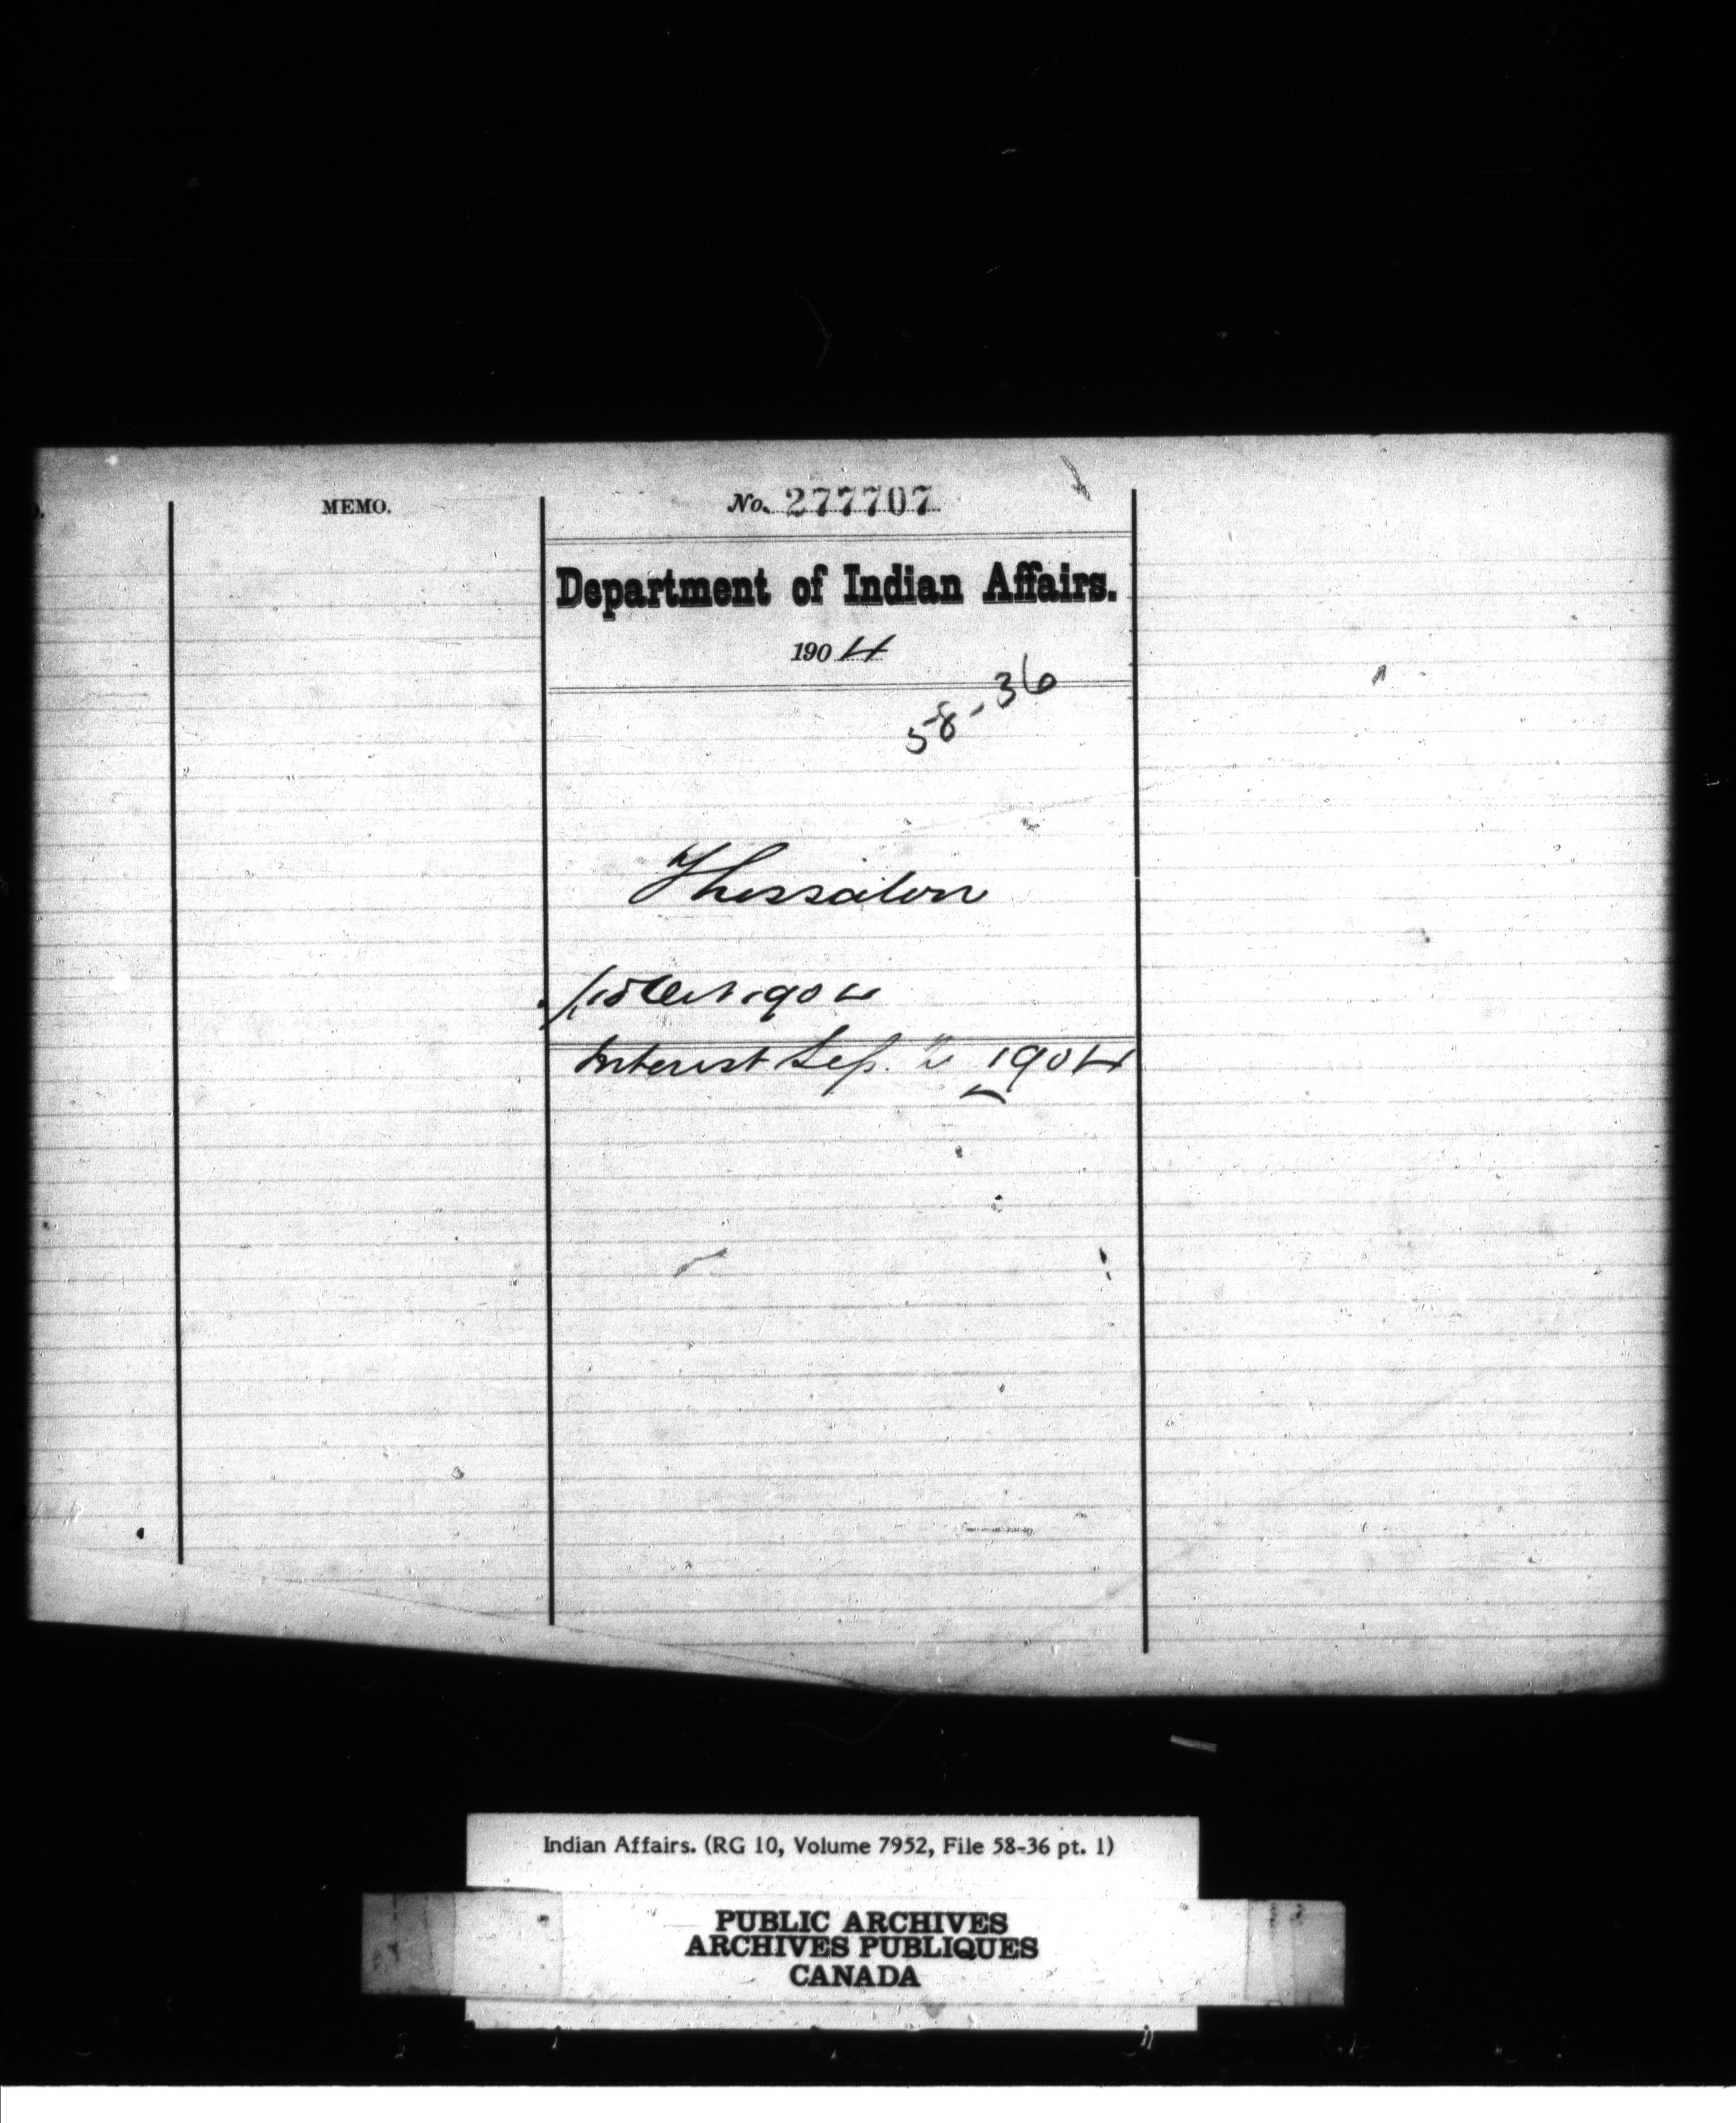 MEMO.
No. 277707
Department of Indian Affairs.
1904
58-36
Thessalon
Oct 1904
Interest Sep. 1904
Indian Affairs. (RG 10, Volume 7952, File 58-36 pt. 1)
PUBLIC ARCHIVES
ARCHIVES PUBLIQUES
CANADA